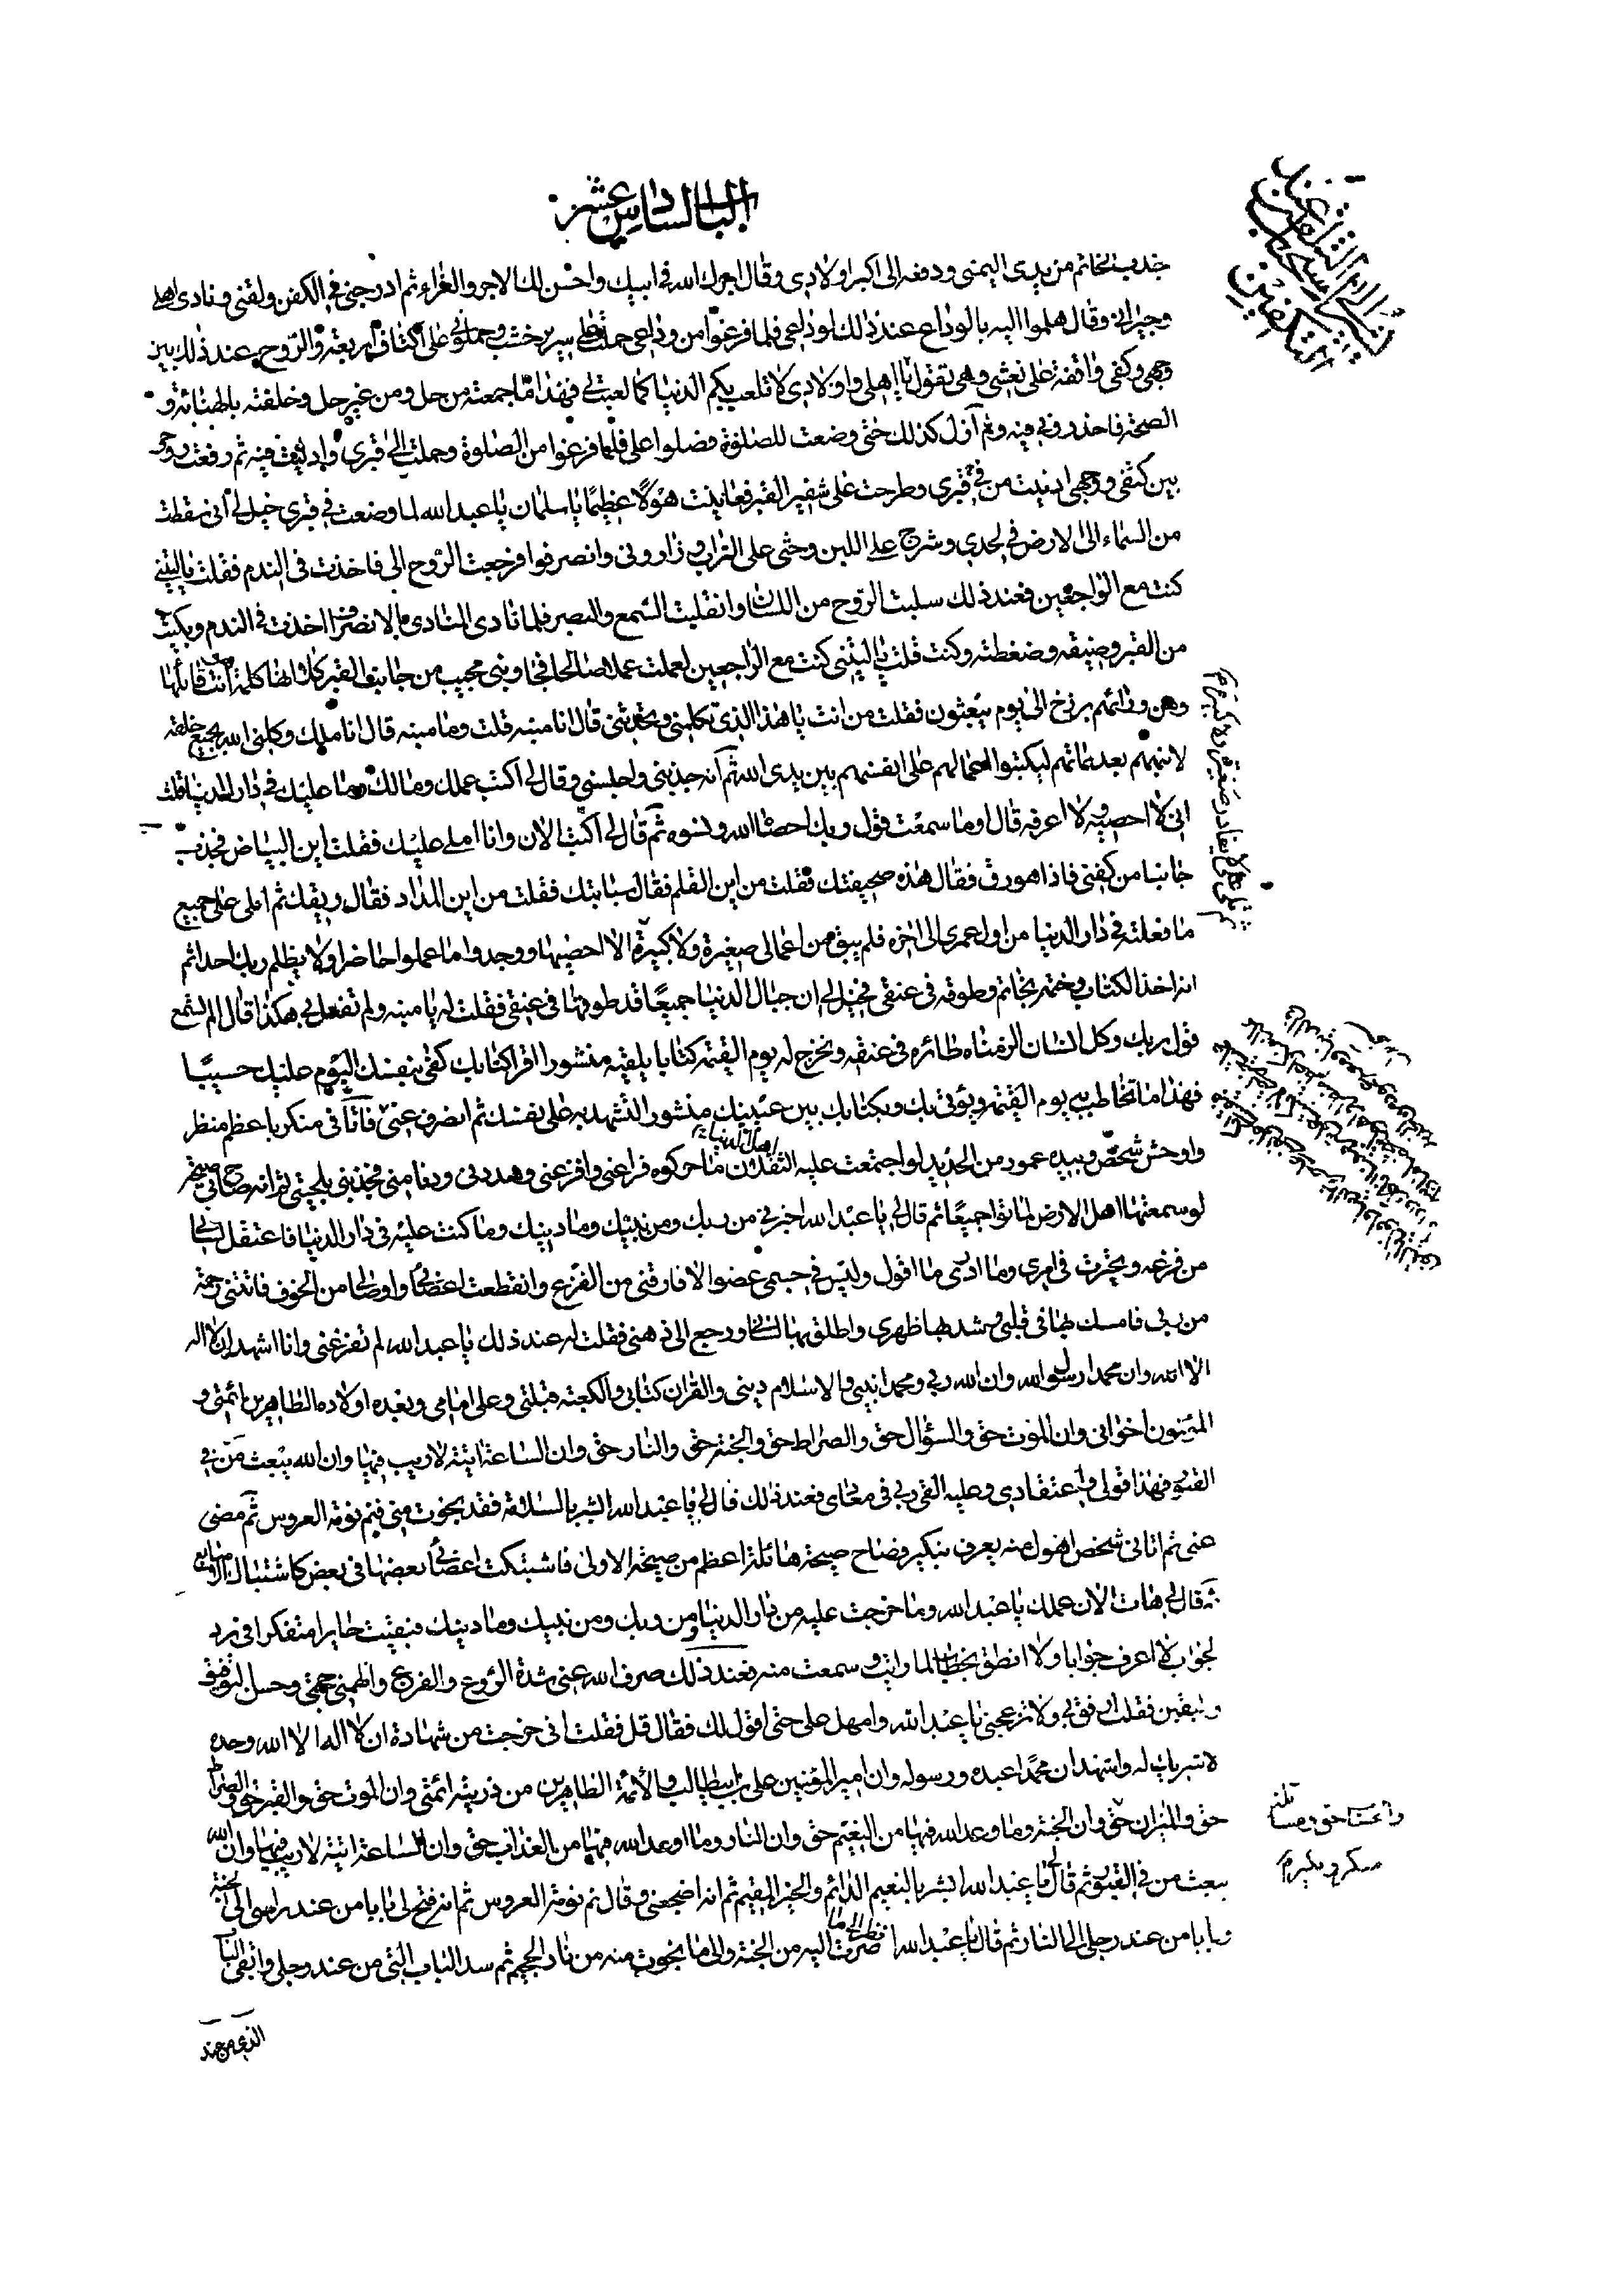 الباب السادس عشر
جذب الخاتم من يدى اليمنى ودفعه الى اكبر اولادى وقال اجرك الله فى ابيك واحسن لك الاجر والعزاء ثم ادرجنى فى الكفن ولقننى ونادى اهلى
وجيرانى وقال هلموا اليه بالوداع فعند ذلك لوداعى فلما فرغوا من وداعى حملت على سرير خشب وحملونى على اكتاف اربعة والروح عند ذلك بين
وجهى وكفنى واقفة على نعشى وهى تقول يا اهلى واولادى لا تلعب بكم الدنيا كما لعبت بى فهذا ما جمعته من حل ومن غير حل وخلفته بالهناءة و
الصحة فاحذروا فيه ولم ازل كذلك حتى وضعت للصلوة فصلوا على فلما فرغوا من الصلوة وحملت الى قبرى وادليت فيه ثم رفعت روحى
بين كتفى ووجهى ادنيت من قبرى وطرحت على شفير القبر فعاينت هولا عظيما يا سلمان يا عبد الله لما وضعت فى قبرى خيل لى انى سقطت
من السماء الى الارض فى لحدى وشرج على اللبن وحثى على التراب وزارونى وانصرفوا فرجعت الروح الى فاخذت فى الندم فقلت يا ليتنى
كنت مع الراجعين فعند ذلك سلبت الروح من اللسان وانقلبت السمع والبصر فلما نادى المنادى بالانصراف اخذت فى الندم وبكيت
من القبر وضيقه وضغطته وكنت قلت يا ليتنى كنت مع الراجعين لعملت عملا صالحا فجاوبنى مجيب من جانب القبر كلا انها كلمة انت قائلها
ومن ورائهم برزخ الى يوم يبعثون فقلت من انت يا هذا الذى تكلمنى وتحدثنى قال انا منبه قلت وما منبه قال انا ملك وكلنى الله بجميع خلقه
لانبههم بعد مماتهم ليكتبوا اعمالهم على انفسهم بين يدى الله ثم انه جذبنى واجلسنى وقال لى اكتب عملك ومالك وما عليك فى دار الدنيا قلت
انى لا احصيه ولا اعرفه قال وما سمعت قول ربك احصاه الله ونسوه ثم قال لى اكتب الان وانا املى عليك فقلت اين البياض فجذب
جانبا من كفنى فاذا هو رق فقال هذه صحيفتك فقلت من اين القلم فقال سبابتك فقلت من اين المداد فقال ريقك ثم املى على جميع
ما فعلته فى دار الدنيا من اول عمرى الى اخره فلم يبق من اعمالى صغيرة ولا كبيرة الا احصيها ووجدوا ما عملوا حاضرا ولا يظلم ربك احدا ثم
انه اخذ الكتاب وختمه بخاتم وطوقه فى عنقى فخيل لى ان جبال الدنيا جميعا قد طوقها فى عنقى فقلت له يا منبه ولم تفعل بى هكذا قال الم تسمع
قول ربك وكل انسان الزمناه طائره فى عنقه ونخرج له يوم القيمة كتابا يلقيه منشورا اقرا كتابك كفى بنفسك اليوم عليك حسيبا
فهذا ما تخاطب به يوم القيمة ويؤتى بك وبكتابك بين عينيك منشورا تشهد به على نفسك ثم انصرف عنى فاتانى منكر باعظم منظر
واوحش شخص وبيده عمود من الحديد لو اجتمعت عليه الثقلان ما حركوه فراعنى وافزعنى وهددنى ودنا منى فجذبنى بلحيتى ثم انه صاح بى صيحة
لو سمعتها اهل الارض لماتوا جميعا ثم قال لى يا عبد الله اخبرنى من ربك ومن نبيك وما دينك وما كنت عليه فى دار الدنيا فاعتقل لسانى
من فزعه وتحيرت فى امرى وما ادرى ما اقول وليس فى جسمى عضو الا فارقنى من الفزع وانقطعت اعضائى واوصالى من الخوف فاتتنى رحمة
من ربى فامسك بها قلبى وشد بها ظهرى واطلق بها لسانى ورجع الى ذهنى فقلت له عند ذلك يا عبد الله لم تفزعنى وانا اشهد ان لا اله
الا الله وان محمدا رسول الله وان الله ربى ومحمد نبيى والاسلام دينى والقران كتابى والكعبة قبلتى وعلى امامى وبعده اولاده الطاهرين ائمتى و
المؤمنون اخوانى وان الموت حق والسؤال حق والصراط حق والجنة حق والنار حق وان الساعة اتية لا ريب فيها وان الله يبعث من فى
القبور فهذا قولى واعتقادى وعليه القى ربى فى معادى فعند ذلك قال لى يا عبد الله ابشر بالسلامة فقد نجوت منى فنم نومة العروس ثم مضى
عنى ثم اتانى شخص اهول منه يعرف بنكير فصاح صيحة هائلة اعظم من صيحة الاولى فاشتبكت اعضائى بعضها فى بعض كاشتباك الاصابع
ثم قال لى هات الان عملك يا عبد الله وما خرجت عليه من دار الدنيا ومن ربك ومن نبيك وما دينك فبقيت حايرا متفكرا فى رد
الجواب لا اعرف جوابا ولا انطق بخطاب لما رايت وسمعت منه فعند ذلك صرف الله عنى شدة الروع والفزع والهمنى حجتى وحسن التوفيق
واليقين فقلت ارفق بى ولا تزعجنى يا عبد الله وامهل على حتى اقول لك فقال قل فقلت انى خرجت من شهادة ان لا اله الا الله وحده
لا شريك له واشهد ان محمدا عبده ورسوله وان امير المؤمنين على بن ابيطالب والائمة الطاهرين من ذريته ائمتى وان الموت حق والقبر حق والصراط
حق والميزان حق وان الجنة وما وعد الله فيها من النعيم حق وان النار وما اوعد الله فيها من العذاب حق وان الساعة اتية لا ريب فيها وان الله
يبعث من فى القبور ثم قال لى يا عبد الله ابشر بالنعيم الدائم والخير المقيم ثم انه اضجعنى وقال نم نومة العروس ثم انه فتح لى بابا من عند راسى الى الجنة
وبابا من عند رجلى الى النار ثم قال يا عبد الله انظر الى ما صرت اليه من الجنة والى ما نجوت منه من نار الجحيم ثم سد الباب التى من عند رجلى وابقى الباب
الذى من عند